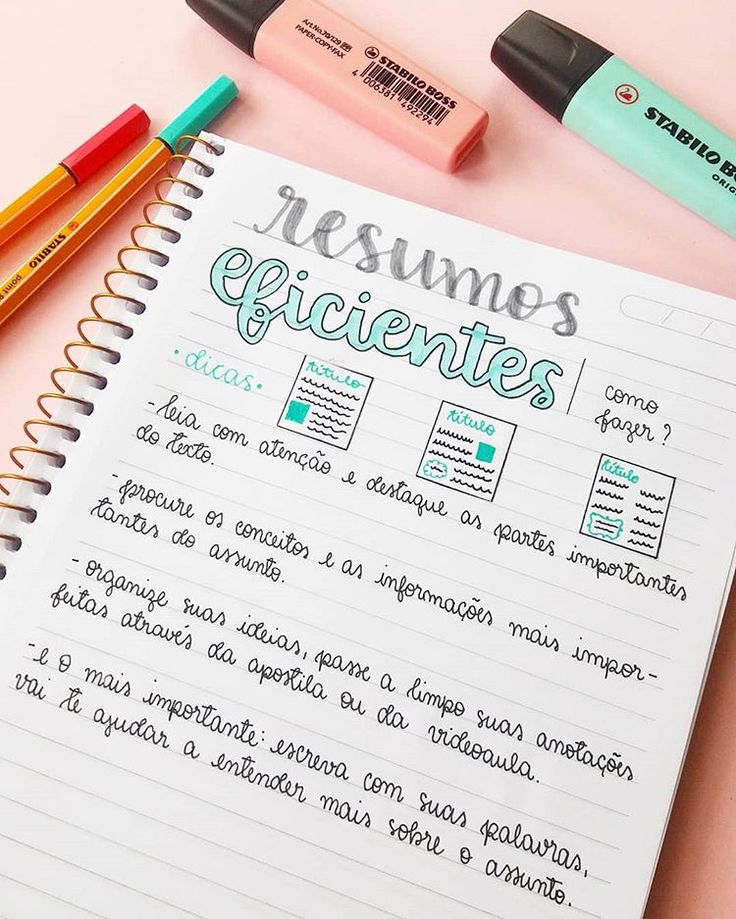 Art.No.70/129
PAPER-COPY-FAX
STABILO BOSS
4 006381 492294
STABILO BOSS
ORIG
STABILO
point
resumos
eficientes
como
fazer?
• dicas •
título
título
título
- leia com atenção e destaque as partes importantes
do texto.
- procure os conceitos e as informações mais impor-
tantes do assunto.
- organize suas ideias, passe a limpo suas anotações
feitas através da apostila ou da videoaula.
- e o mais importante: escreva com suas palavras,
vai te ajudar a entender mais sobre o assunto.